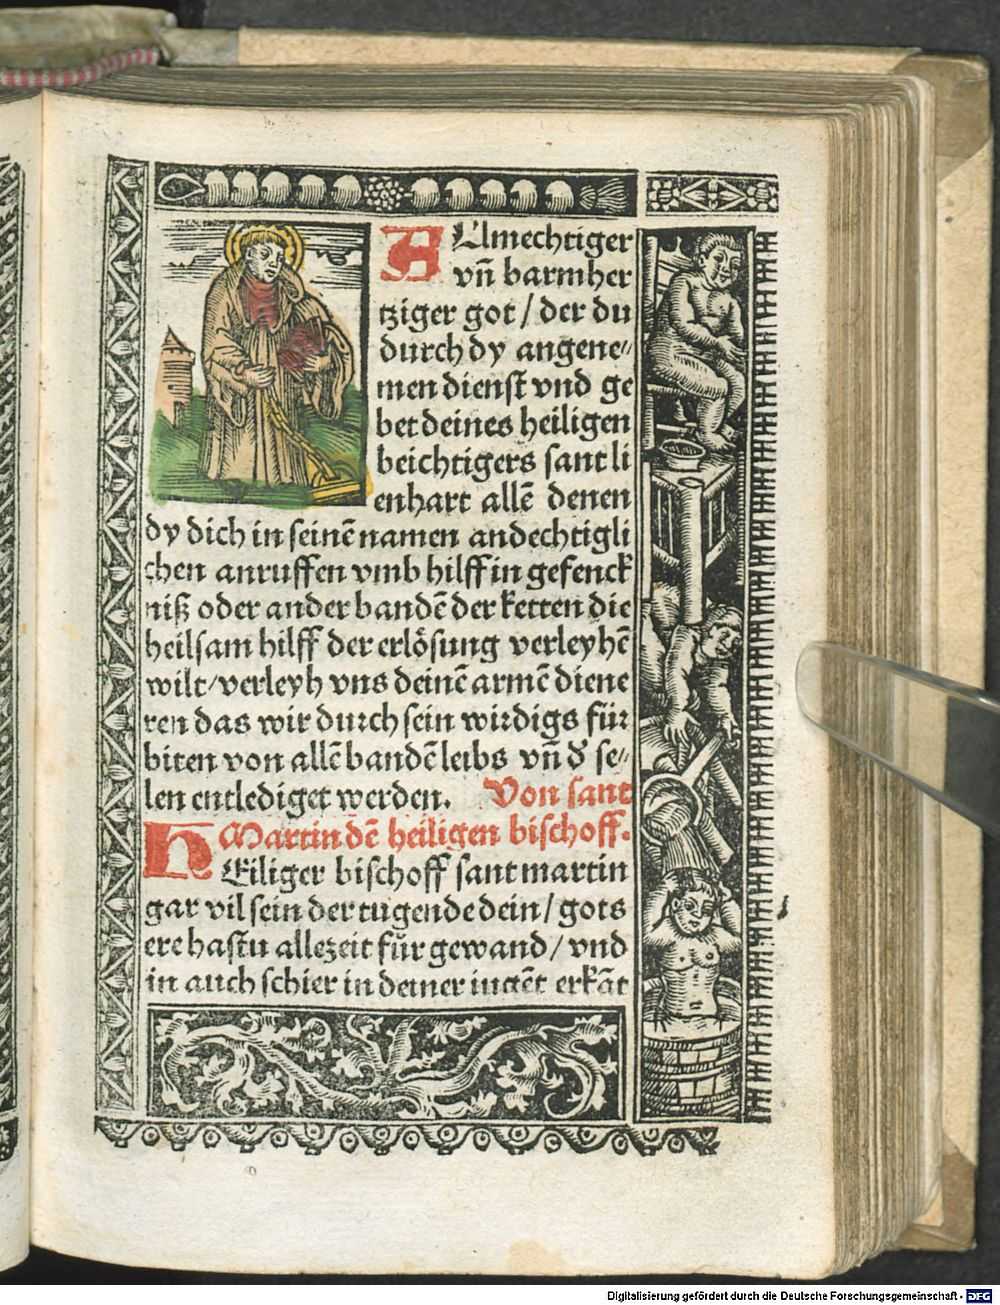 ALmechtiger
vñ barmher
tziger got / der du
durch dy angene⸗
men dienst vnd ge
bet deines heiligen
beichtigers sant li
enhart allẽ denen
dy dich in seinẽ namen andechtigli
chen anruffen vmb hilff in gefenck
niß oder ander bandẽ der ketten die
heilsam hilff der erlösung verleyhẽ
wilt / verleyh vns deinẽ armẽ diene
ren das wir durch sein wirdigs für
biten von allẽ bandẽ leibs vñ đ se⸗
len entlediget werden. Von sant
Martin dẽ heiligen bischoff.
HEiliger bischoff sant martin
gar vil sein der tugende dein / gots
ere hastu allezeit für gewand / vnd
in auch schier in deiner iugẽt erkãt
Digitalisierung gefördert durch die Deutsche Forschungsgemeinschaft - DFG